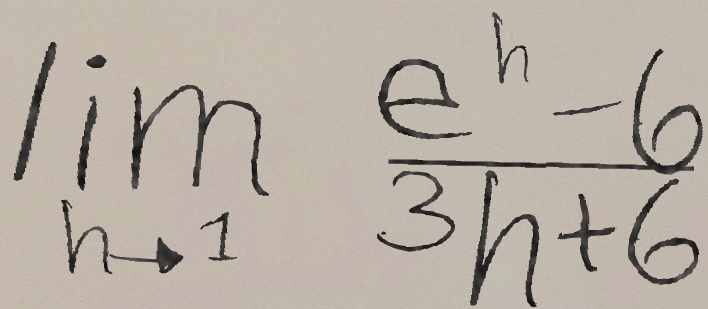 lim h→1 (e^h − 6)/(3h + 6)